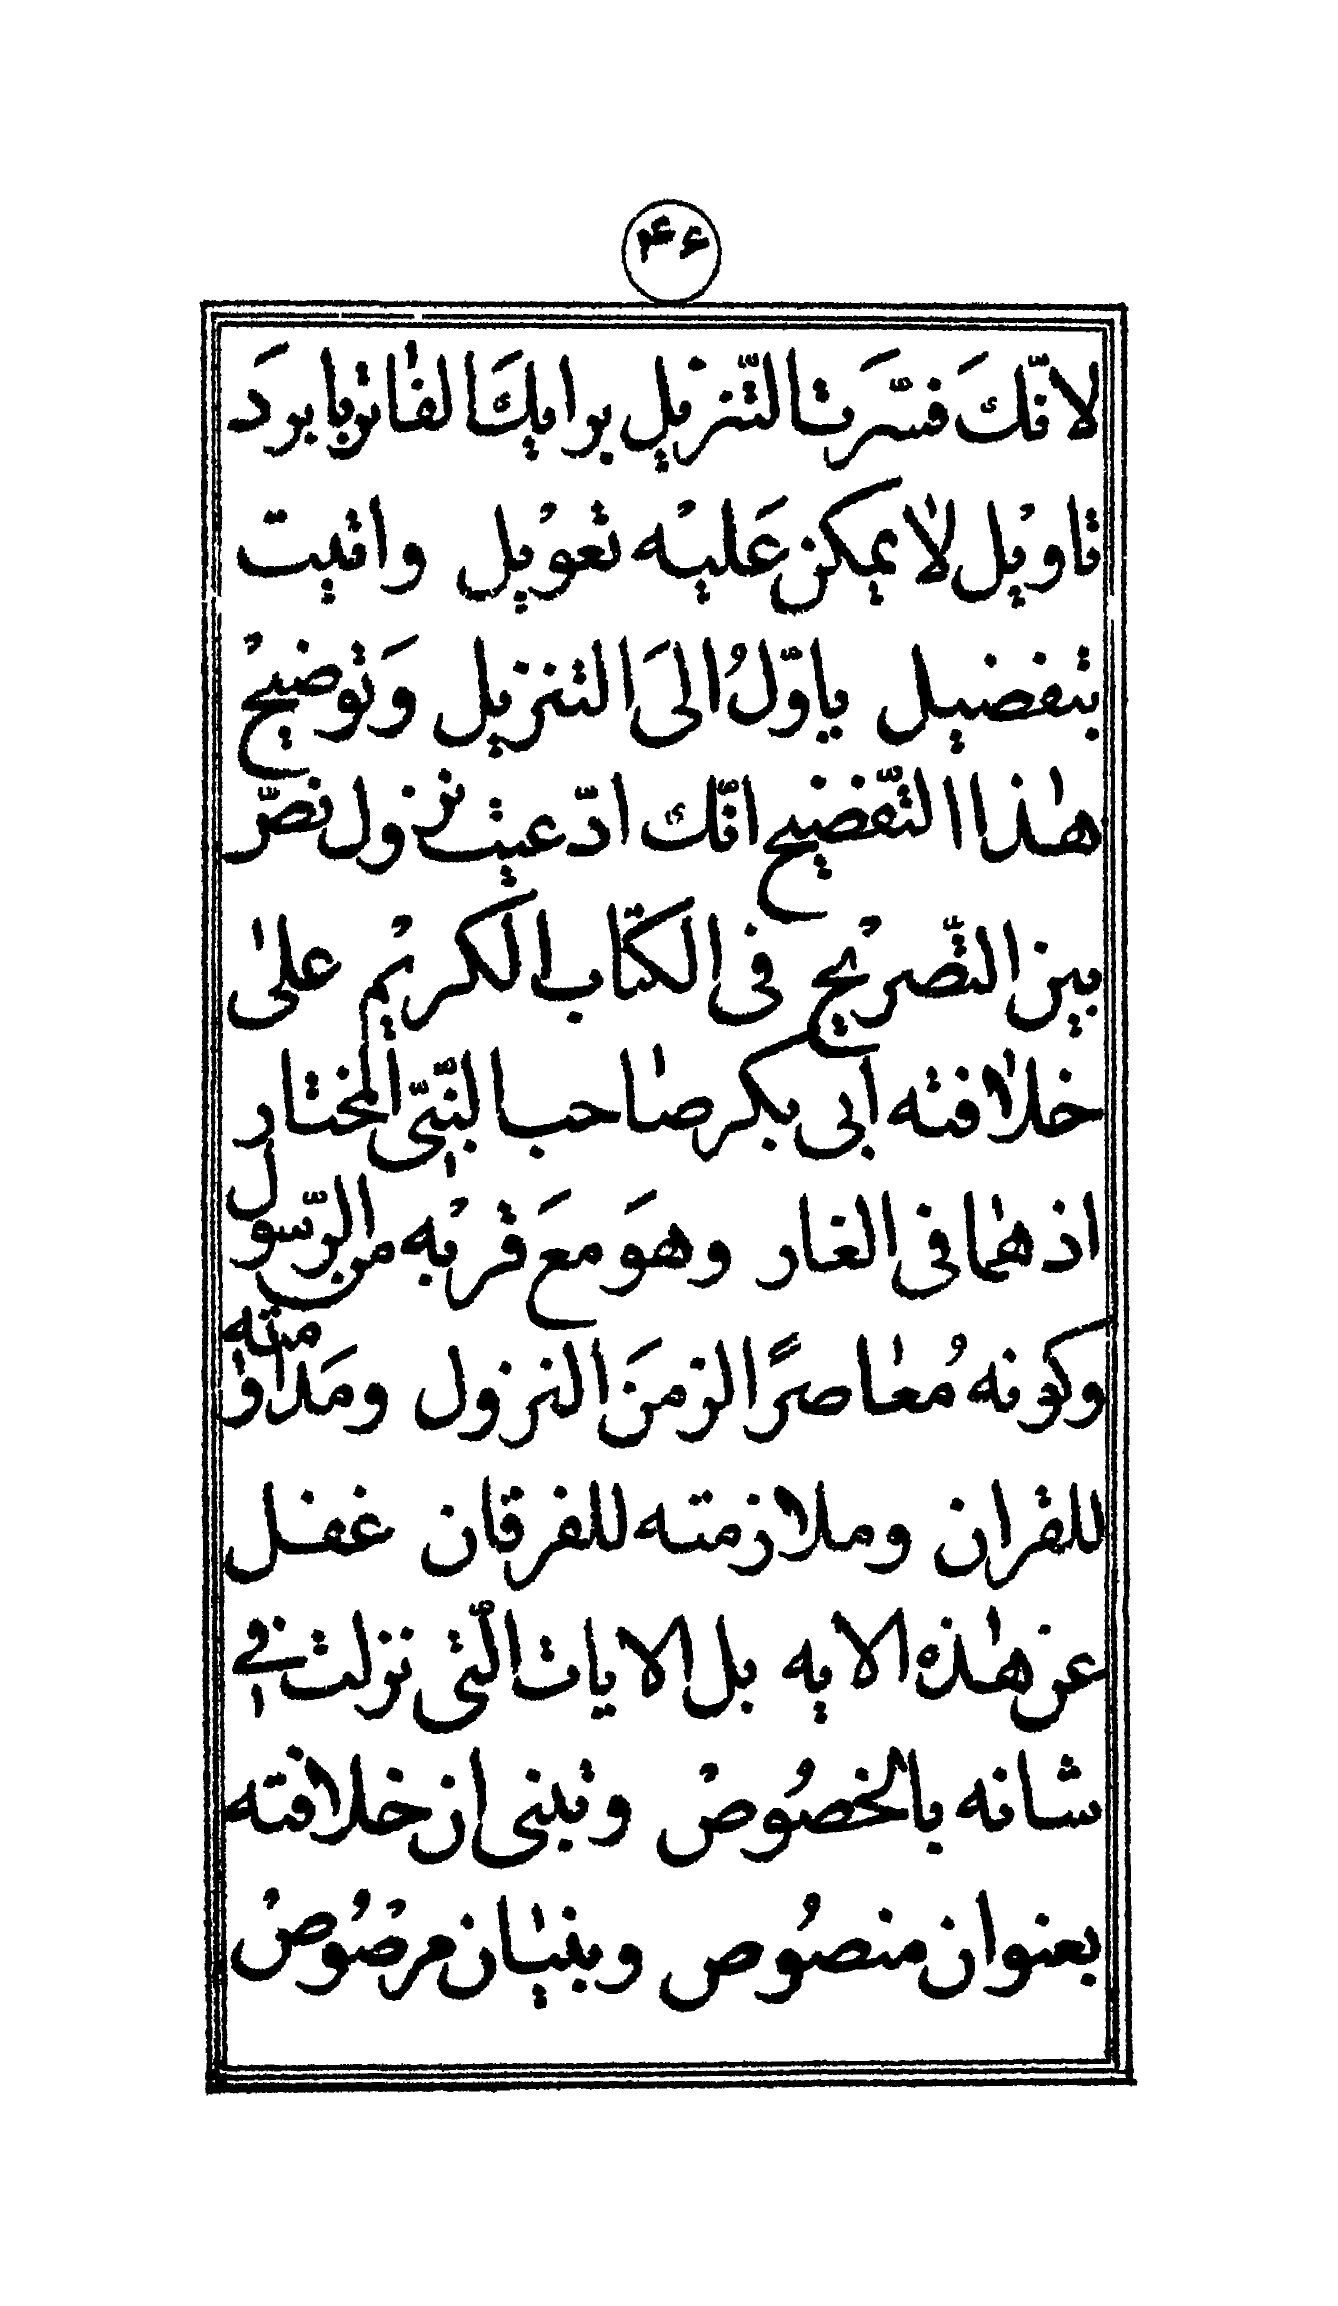 ۴۶
لانّكَ فسّرتَ التّنزيل برايكَ الفاتر بابردَ
تاويل لا يمكن عَليه تعويل واتيت
بتفضيل ياوّلُ الىَ التنزيل وَتوضيحُ
هٰذا التّفضيح انّك ادّعيت نزول نصّ
بين التّصريح فى الكتاب الكريم علىٰ
خلافته ابى بكر صاحب النّبىّ المختار
اذ هما فى الغار وهوَ معَ قربه من الرّسول
وكونه مُعاصرًا لزمنَ النزول ومَداومته
للقران وملازمته للفرقان غفل
عن هٰذه الايه بل الايات الّتى نزلت فى
شانه بالخصُوص وتبنى ان خلافته
بعنوان منصُوص وبنيٰان مرصُوص